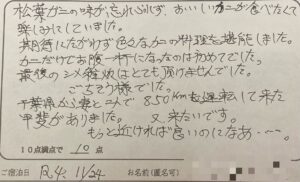 松葉ガニの味が忘れられず、おいしいカニが食べたくて
楽しみにしていました。
期待にたがわず色々なカニの料理を堪能しました。
カニだけでお腹一杯になったのは初めてでした。
最後のシメ雑炊はとても頂けませんでした。
ごちそう様でした。
千葉県から妻と二人で850kmを運転して来た
甲斐がありました。 又、来たいです。
もっと近ければ良いのになあ・・・。
10点満点で 10 点
ご宿泊日 R.4. 11/24 お名前(匿名可)